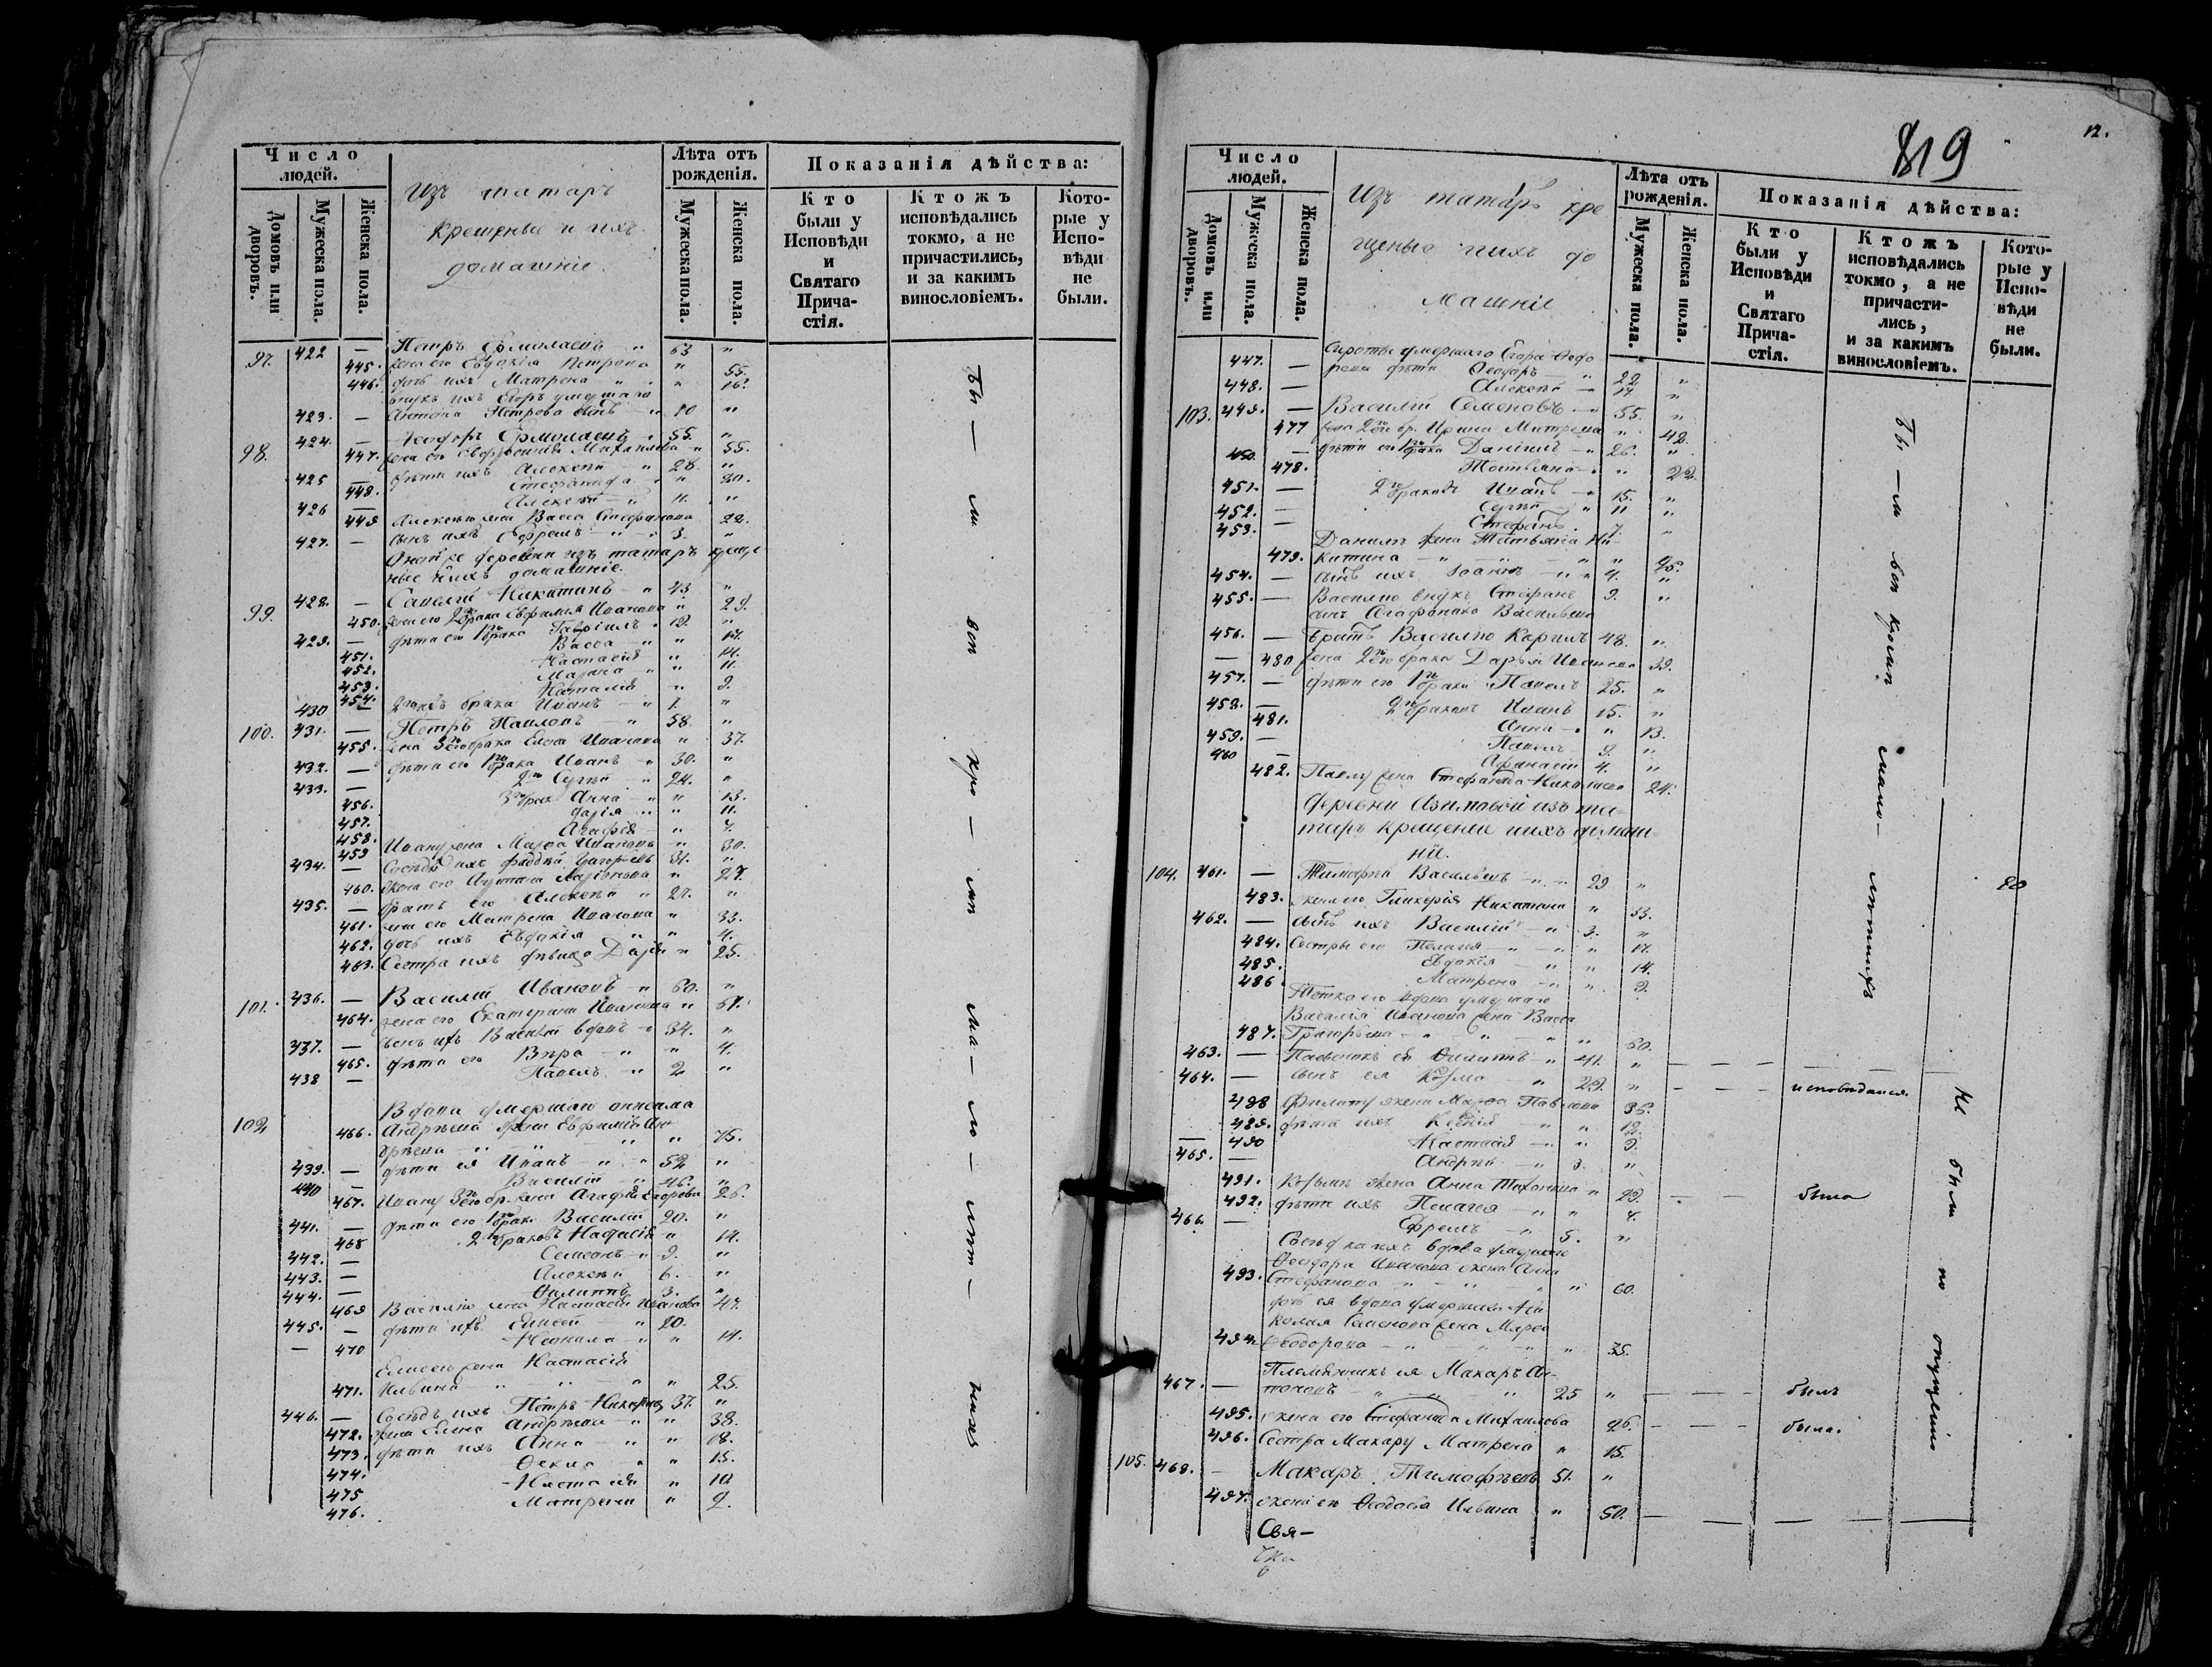 Число людей.
Домовъ или дворовъ.
Мужеска пола.
Женска пола.
Изъ татаръ
крещеные и ихъ
домашніе.
Лѣта отъ рожденія.
Мужеска пола.
Женска пола.
Показанія дѣйства:
Кто были у Исповѣди и Святаго Прича-стія.
Ктожъ исповѣдались токмо, а не причастились, и за какимъ винословіемъ.
Кото-рые у Испо-вѣди не были.
97. 422 — Петръ Ермолаевъ " 63 "
445. жена его Евдокія Петрова " 55.
446. дочь ихъ Матрена " " 16.
внукъ ихъ Егоръ умершаго
423. — Антона Петрова сынъ " 10 "
98. 424. — Ѳеодоръ Ермолаевъ " 55. "
447. жена его Михайлова " 55.
425 — дѣти ихъ Алексѣй " 28. "
448. Стефанида " 20.
426 — Алексѣй " 11. "
449 Алексѣю жена Васса Стефанова 22.
427. — сынъ ихъ Ефремъ " 3. "
Оной же деревни изъ татаръ креще
ные и ихъ домашніе.
99. 428. — Савелій Никитинъ " 43 "
450. жена его 2го брака Евфимія Иванова " 29.
429. — дѣти его 1го брака Гавріилъ " 19. "
451. Васса " " 17.
452. Настасія " 14.
453. Марѳа " " 11.
454. Наталія " 9.
430 — брака Иванъ " 7. "
100. 431. — Петръ Павловъ " 58. "
455. жена 3го брака Елена Иванова " 37.
432. — дѣти его 1го брака Иванъ " 30. "
433. — 2го Сергѣй " 24. "
456. 3го брака Анна " " 13.
457. Дарія " " 11.
458. Агафія " 7.
459 Ивану жена Марѳа Иванова " 30.
434. — Сосѣдъ ихъ Фаддей Григорьевъ 31. "
460. жена его Ларіонова " 27.
435. — братъ его Алексѣй " 27. "
461. жена его Матрена Иванова " 33.
462. дочь ихъ Евдокія " " 4.
463. Сестра ихъ дѣвица Дарья " 25.
101. 436. — Василій Ивановъ " 60. "
464. жена его Екатерина Иванова " 61.
437. — сынъ ихъ Василій вдовъ " 34. "
465. дѣти его Вѣра " " 4.
438 — Павелъ " 2 "
102 Вдова умершаго
466. Андреева жена Евфимія Ан
дреева " " " 75.
439. — дѣти ея Иванъ " " 52 "
440 — Василій " 46. "
467. Ивану 3го бр. жена Агафія Егорова 26.
441. — дѣти его 1го брака Василій 20. "
468 2го браковъ Настасія " 14.
442. — Семеонъ " 9. "
443. — Алексѣй 6. "
444. — Филиппъ 3. "
469 Василію жена Настасія Иванова 47.
445. — дѣти ихъ Елисей " 20.
— 470 Неонила " " 14.
Елисею жена Настасія
471. Ильина " " " " 25.
446. — Сосѣдъ ихъ Петръ 37. "
472. жена Елена Андреева " " 38.
473. дѣти ихъ Анна " " 18.
474. Ѳекла " 15.
475 Настасія " 10
476. Матрена " 9.
бы — ли все кро — мѣ ма — ло — лѣт — нихъ
819
12.
Число людей.
Домовъ или дворовъ.
Мужеска пола.
Женска пола.
Изъ татаръ кре
щеные и ихъ до
машніе
Лѣта отъ рожденія.
Мужеска пола.
Женска пола.
Показанія дѣйства:
Кто были у Исповѣди и Святаго Прича-стія.
Ктожъ исповѣдались токмо, а не причасти-лись, и за какимъ винословіемъ.
Кото-рые у Испо-вѣди не были.
Сироты умершаго Егора Ѳедо
447. — рова дѣти Ѳеодоръ " 22 "
448. — Алексѣй — 17 "
103. 449. — Василій Семеновъ — 55. "
477 жена 2го бр. Ирина " 42.
450. — дѣти его 1го брака Даніилъ — 26. "
478. Татьяна " 22
451. — 2го браковъ Иванъ 15. "
452. — Сергѣй " 11 "
453. — Стефанъ. 7. "
Данилѣ жена Татьяна Ни
479. китина " " " 25.
454. — сынъ ихъ Іоаннъ " 4. "
455. — Василію внукъ Стефанъ 9. "
Агафоника Васильева
456. — братъ Василію Карпъ 48. "
— 480 жена 2го брака Дарья Иванова 39.
457. — дѣти его 1го брака Павелъ 25. "
458. — 2го браковъ Иванъ 15. "
481. Анна " " 13.
459. — Павелъ 9. "
460 — Афанасій 4. "
482. Павлу жена Стефанида Николаева 24.
Деревни Азимовой изъ та-
таръ крещеные и ихъ домаш-
ніе.
104. 461. — Тимофѣй Васильевъ " 29 "
483. жена его Гликерія Никитина " 33.
462. — сынъ ихъ Василій " 3. "
484. Сестры его Пелагея " " 17.
485. Евдокія " " 14.
486. Матрена " " 9.
Тетка его вдова умершаго
Василія Иванова жена Васса
487. " " " " 60.
463. — Пасынокъ ея Филиппъ " 41. "
464. — сынъ ея Козма " 29. " исповѣдался.
488 Филиппу жена Марѳа Павлова 35.
489. дѣти ихъ Ксенія " " 12.
490 Настасія " " 9.
465. — Андрей " 3. "
491. Козьмѣ жена Анна Тихонова " 29. — была
492. дѣти ихъ Пелагея " " 7.
466. — Ефремъ " 5. "
Сосѣдка ихъ вдова умершаго
Ѳеодора Иванова жена Анна
493. Стефанова " " " 60.
дочь ея вдова умершаго Ни
колая Семенова жена Марѳа
494. Ѳеодорова " " " 35.
Племянникъ ея Макаръ Ан-
467. — тоновъ " " " 25 " — — — былъ
495. жена его Стефанида Михаилова 26. — — — была.
496. Сестра Макару Матрена " 15.
105. 468. — Макаръ Тимофѣевъ 51. "
497. жена его Ѳеодосія Ильина " 50.
Свя—
бы — ли все кромѣ мало — лѣтнихъ
Не были по опущенію
80